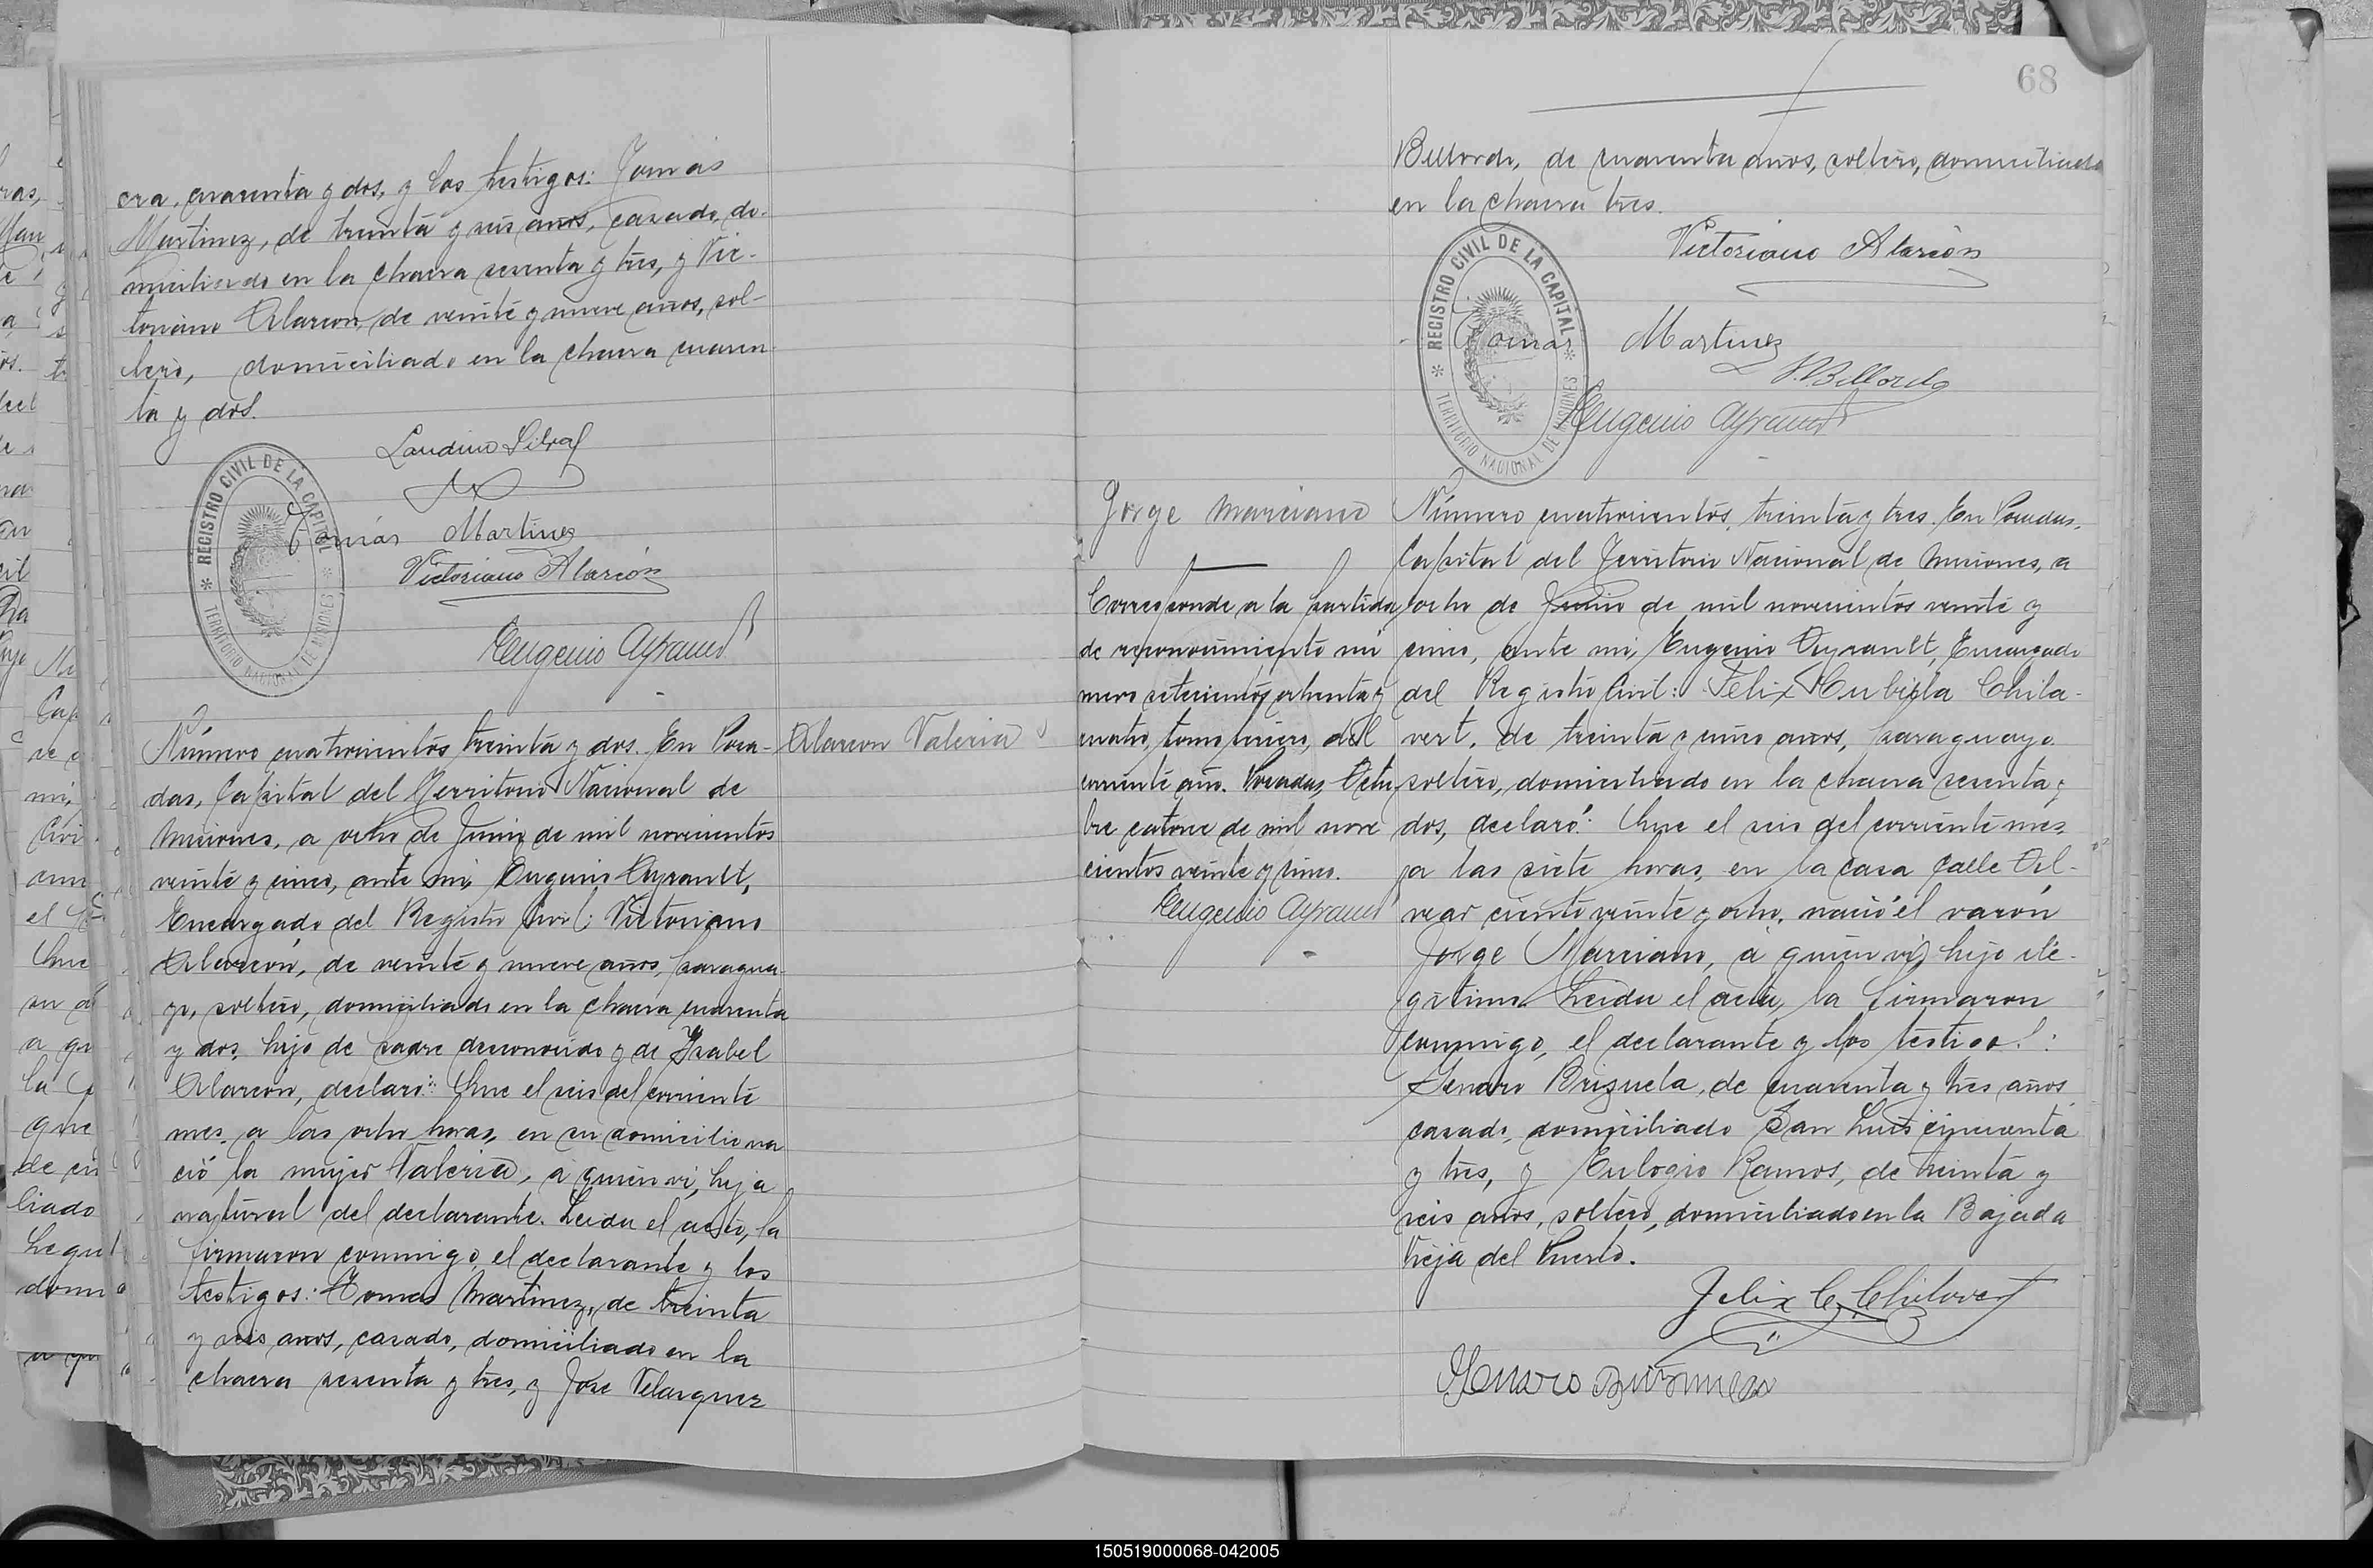 cra, cuarenta y dos, y los testigos: Tomás
Martinez, de treinta y seis años, casado, do-
miciliado en la chacra sesenta y tres, y Vic-
toriano Alarcon, de veinte y nueve años, sol-
tero, domiciliado en la chacra cuaren-
ta y dos.
Tomás Martinez
Victoriano Alarcón
Eugenio Ayrault
REGISTRO CIVIL DE LA CAPITAL
TERRITORIO NACIONAL DE MISIONES
Alarcon Valeria
Número cuatrocientos treinta y dos. En Posa-
das, Capital del Territorio Nacional de
Misiones, a ocho de Junio de mil novecientos
veinte y cinco, ante mi, Eugenio Ayrault,
Encargado del Registro Civil: Victoriano
Alarcón, de veinte y nueve años, paragua-
yo, soltero, domiciliado en la chacra cuarenta
y dos, hijo de padre desconocido y de Ysabel
Alarcon, declaró: Que el seis del corriente
mes, a las ocho horas, en su domicilio na
ció la mujer Valeria, a quien vi, hija
natural del declarante. Leida el acta, la
firmaron conmigo, el declarante y los
testigos: Tomas Martinez, de treinta
y seis años, casado, domiciliado en la
chacra sesenta y tres, y Jose Velasquez
68
Billordo, de cuarenta años, soltero, domiciliado
en la chacra tres.
Victoriano Alarcón
Tomás Martinez
Billordo
Eugenio Ayrault
REGISTRO CIVIL DE LA CAPITAL
TERRITORIO NACIONAL DE MISIONES
Jorge Marciano
Corresponde a la partida
de reconocimiento nú
mero setecientos ochenta y
cuatro, tomo tercero, del
corriente año. Posadas, Octu
bre catorce de mil nove
cientos veinte y cinco.
Eugenio Ayrault
Número cuatrocientos treinta y tres. En Posadas,
Capital del Territorio Nacional de Misiones, a
ocho de Junio de mil novecientos veinte y
cinco, ante mi, Eugenio Ayrault, Encargado
del Registro Civil: Felix Cubilla Chila-
vert, de treinta y cinco años, paraguayo
soltero, domiciliado en la chacra sesenta y
dos, declaró: Que el seis del corriente mes
a las siete horas, en la casa calle Al-
vear ciento veinte y ocho, nació el varón
Jorge Marciano, a quien vi, hijo ile-
gitimo. Leida el acta, la firmaron
conmigo, el declarante y los testigos:
Genaro Brizuela, de cuarenta y tres años
casado, domiciliado San Luis cincuenta
y tres, y Eulogio Ramos, de treinta y
seis años, soltero, domiciliado en la Bajada
Vieja del Puerto.
Felix C. Chilavert
Genaro Brizuela
150519000068-042005